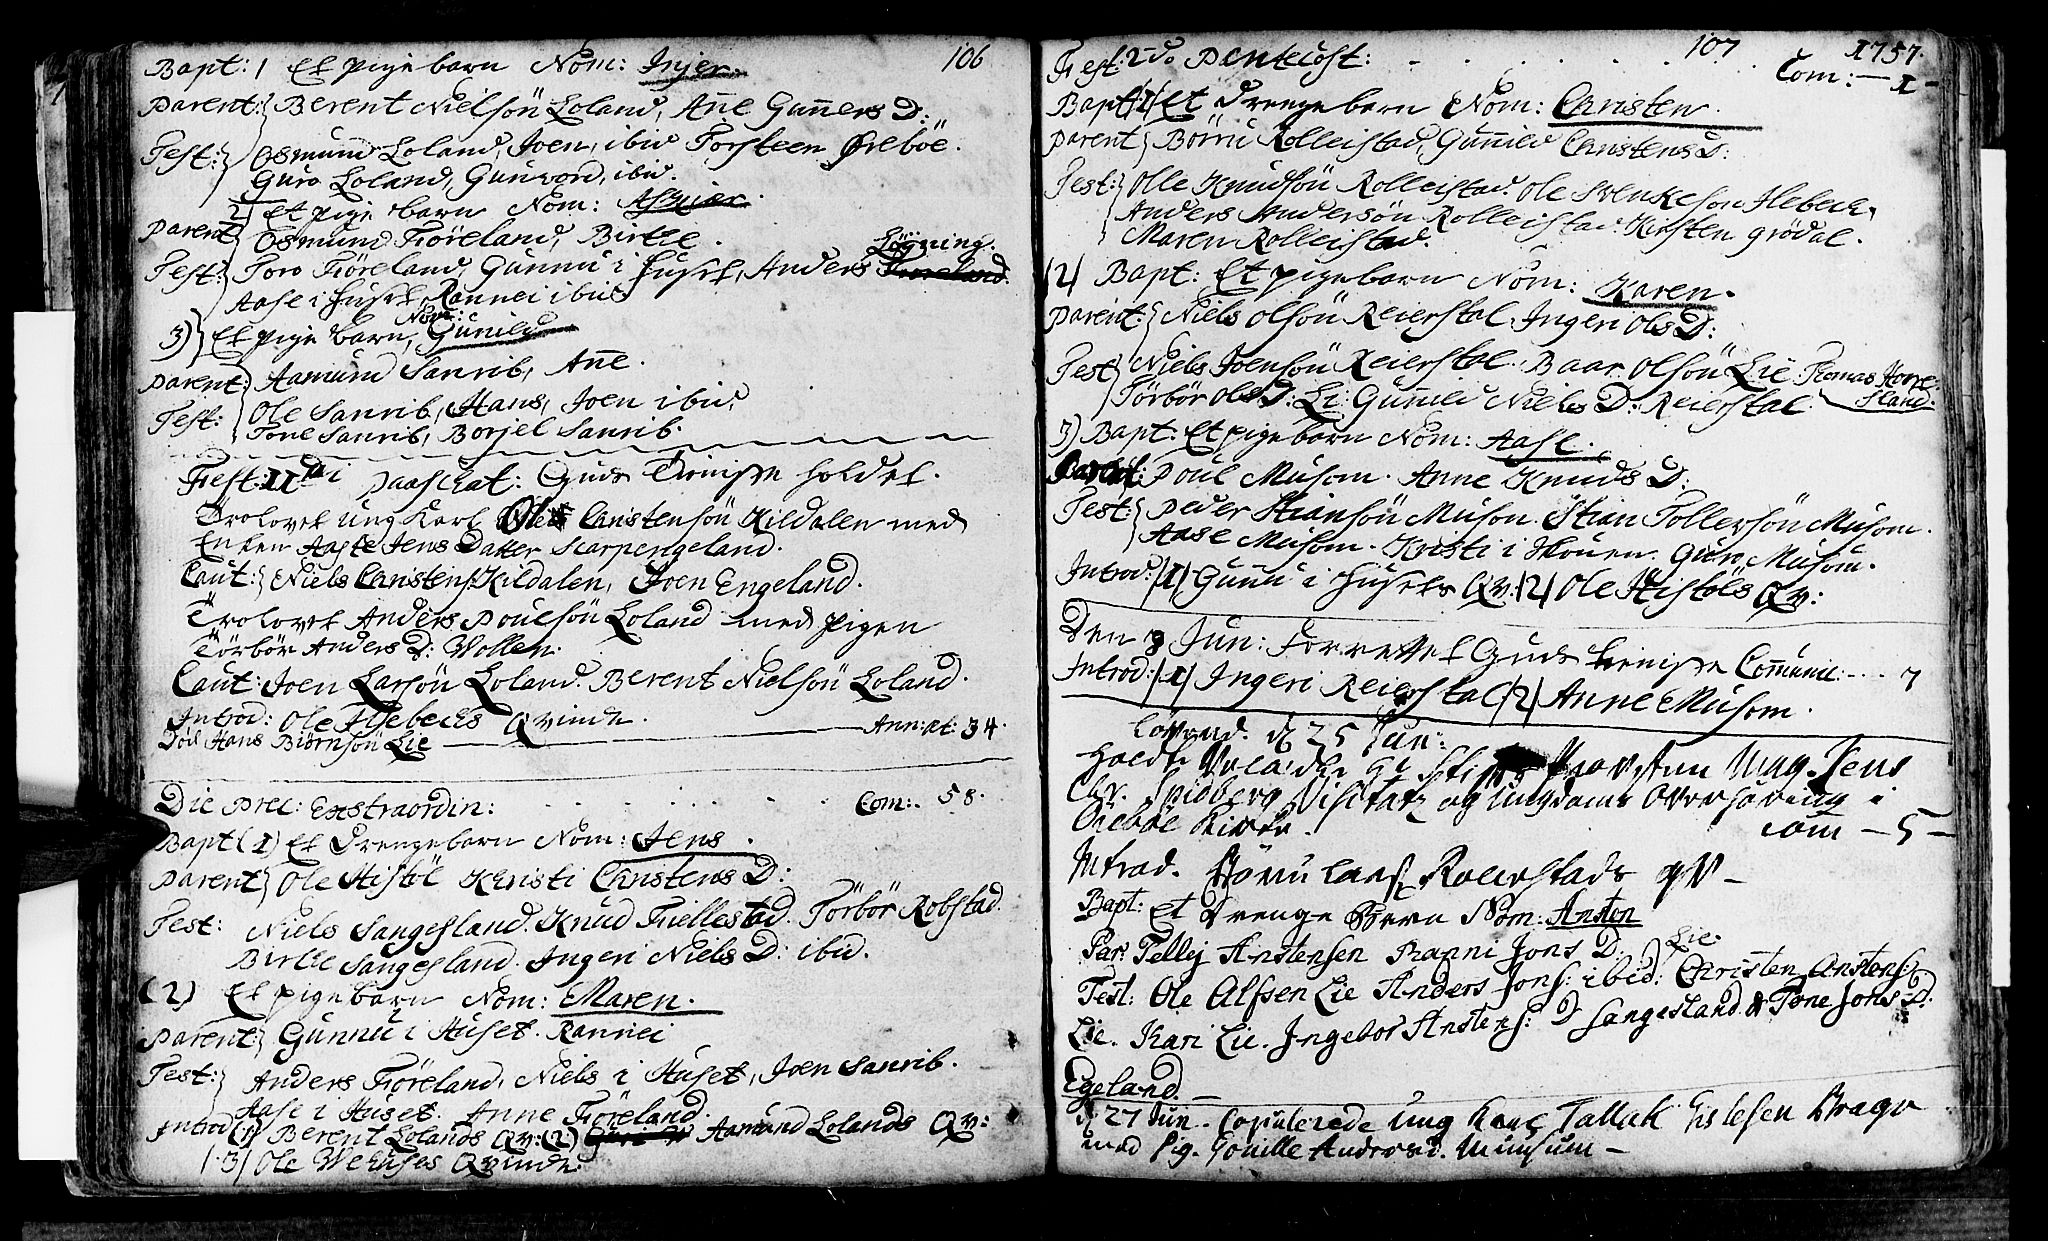 106
Bapt: 1 Et pige barn Nom: Injer.
Parent: Berent Nielsön Loland, Añe Guñers D:
Test: Osmund Loland, Joen, ibid Torsteen Öreböe.
Guro Loland, Gunvord, ibid.
2) Et pige barn Nom: Assier.
Parent Osmund Fiöreland, Birtte.
Test: Toro Fiöreland, Gunnu i Huset, Anders Fioreland Lögning.
Aase i Huset Rannei ibid
3) Et pige barn, Nom: Guñild
Parent: Aamund Sanrib, Añe.
Test: Ole Sanrib, Hans, Joen ibid,
Tone Sanrib, Borjel Sanrib.
Fest: IIdi Paaschat: Guds Tieniste holdet.
Trolovet ung Karl Ole Christensön Kildalen med
Enken Aaste Jens Datter Scarpengeland.
Caut: Niels Christens: Kildalen, Joen Engeland.
Trolovet Anders Poulsön Loland med pigen
Törbör Anders D: Wollen.
Caut: Joen Larsön Loland. Berent Nielsön Loland.
Introd: Ole Ilebecks Qvinde.
Död Hans Biörnsön Lie Ann: æt: 34.
Die Prec: Exstraordin: Com: 58.
Bapt (1) Et Drenge barn Nom: Jens.
Parent Ole Stistöl Kristi Christens D:
Test: Niels Sangesland. Knud Fiellestad. Törbör Robstad.
Birtte Sangesland. Ingeri Niels D: ibid.
(2) Et pige barn Nom: Maren.
Parent: Gunnu i Huset. Rannei
Test: Anders Fiöreland, Niels i Huset, Joen Sanrib.
Aase i Huset. Anne Fiöreland.
Introd (1) Berent Lolands Qv: (2) Aamund Lolands Qv:
(3) Ole Wehuses Qvinde.
107 1757.
Fest: 2do Pentecost: Com: 1
Bapt: 1) Et Drenge barn Nom: Christen.
Parent Börru Rolleistad, Guñild Christens D:
Test: Olle Knudsön Rolleistad. Ole Svenkeson Ilebeck,
Anders Andersön Rolleistad. Kirsten Grödal.
Maren Rolleistad.
(2) Bapt: Et pige barn Nom: Karen.
Parent: Niels Olsön Reierstal Ingeri Ols D:
Test Niels Joensön Reierstal. Baar Olsön Lie Thomas Horrefland.
Törbör Ols D: Li: Guñild Niels D: Reierstal.
3) Bapt: Et pige barn Nom: Aase.
Parent: Poul Musom. Anne Knuds D:
Test: Peder Stiansön Muson. Stian Tollersön Musom.
Aase Musom. Kristi i Skouen. Guro Musom.
Introd: (1) Guñu i Husets Qv: (2) Ole Stistöls Qv:
Den 3 Jun: forrettet Guds tieniste Comunic: 7
Introd: (1) Ingeri Reierstal (2) Anne Musom.
Löverd. d 25 Jun:
holdt Provsten Mag. Jens
Chr. Spidberg Visitatz og ungdoms Overhöring i
Öreböe Kirke. com — 5 —
Introd. Rolleistads qv —
Bapt: Et Drenge Barn Nom: Ansten
Par: Tellej Anstensen Ranni Jons D: Lie.
Test: Ole Alfsen Lie Anders Jons: ibid: Christen Anstens:
Lie. Kari Lie. Ingebor Anstens: D Sangesland & Tone Jons D.
Egeland.
d 27 Jun. Copulerede ung Karl Tallak Gislesen Bragv
med Pig. Gonille Andersd. Munsum —